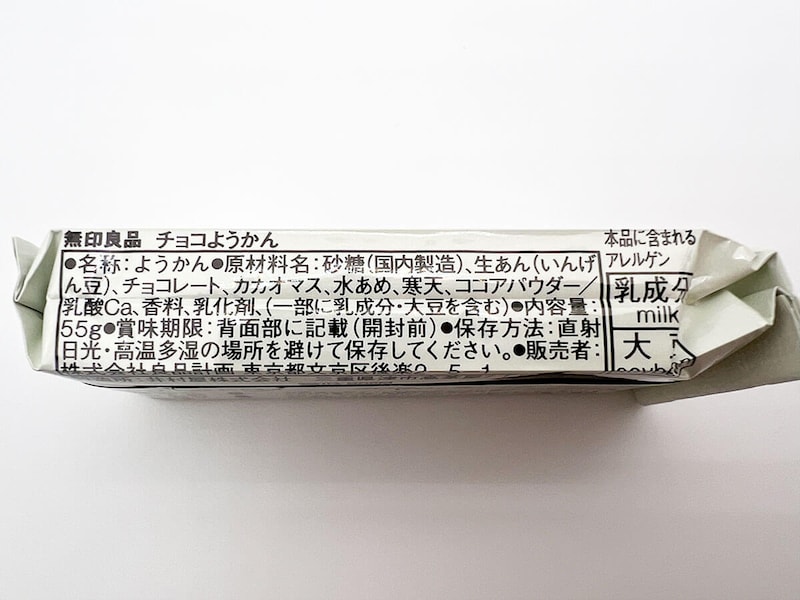 無印良品 チョコようかん
●名称:ようかん●原材料名:砂糖(国内製造)、生あん(いんげ
ん豆)、チョコレート、カカオマス、水あめ、寒天、ココアパウダー/
乳酸Ca、香料、乳化剤、(一部に乳成分・大豆を含む)●内容量:
55g●賞味期限:背面部に記載(開封前)●保存方法:直射
日光・高温多湿の場所を避けて保存してください。●販売者:
株式会社良品計画 東京都文京区後楽2-5-1
本品に含まれる
アレルゲン
乳成分
milk
大